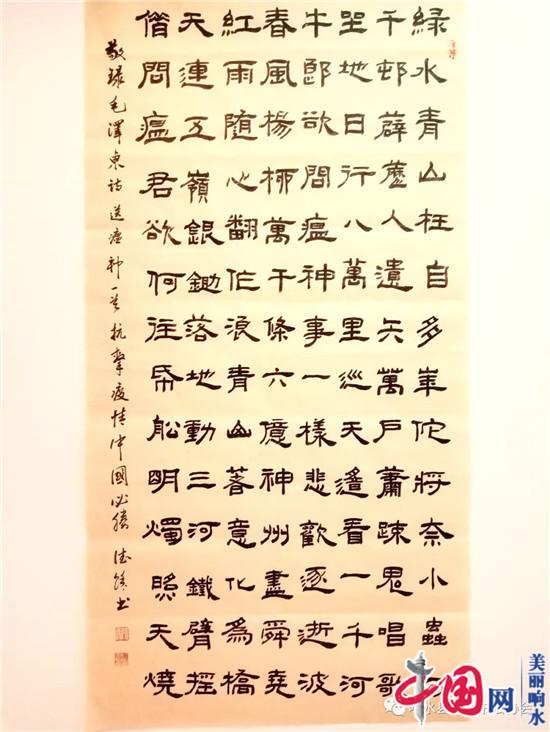 綠水青山枉自多華佗將奈小蟲
千邨薜蘿人遺矢萬戶蕭疎鬼唱歌
坐地日行八萬里巡天遙看一千河
牛郎欲問瘟神事一樣悲歡逐逝波
春風楊柳萬千條六億神州盡舜堯
紅雨隨心翻作浪青山著意化為橋
天連五嶺銀鋤落地動三河鐵臂搖
借問瘟君欲何往帋船明燭照天燒
敬録毛澤東詩送瘟神一首抗擊疫情中國必勝 德 書
中国网
美丽响水